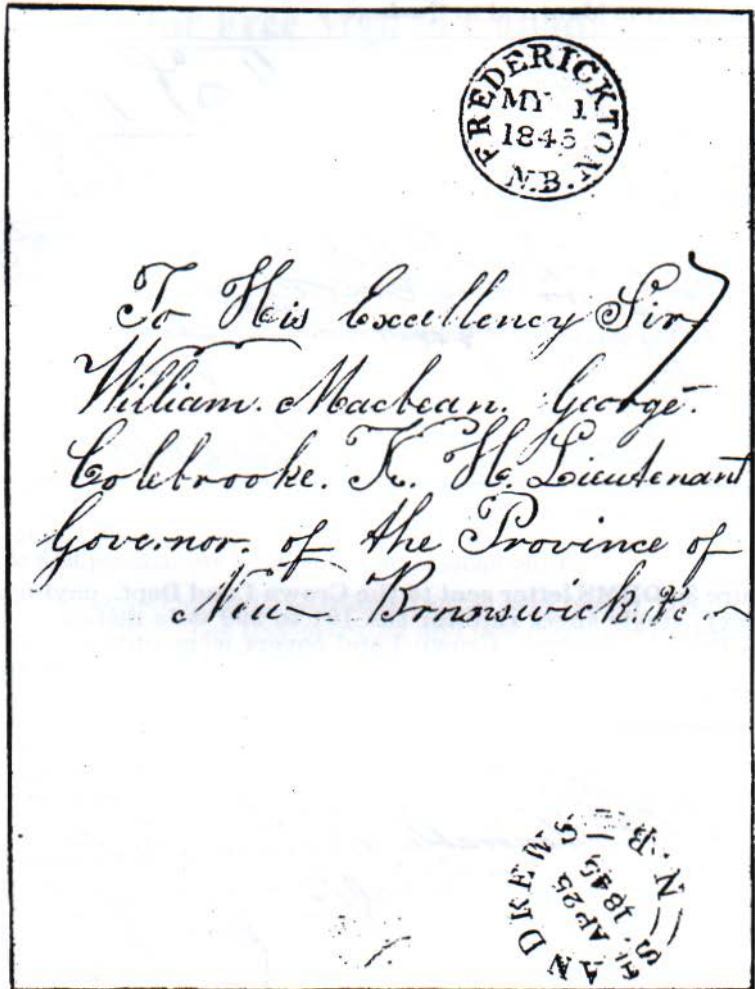 FREDERICKTON N.B.
MY 1
1845
To His Excellency Sir
William. Macbean. George.
Colebrooke. K. H. Lieutenant
Governor. of the Province of
New Brunswick. &c
ST. ANDREWS N.B
AP 25
1845